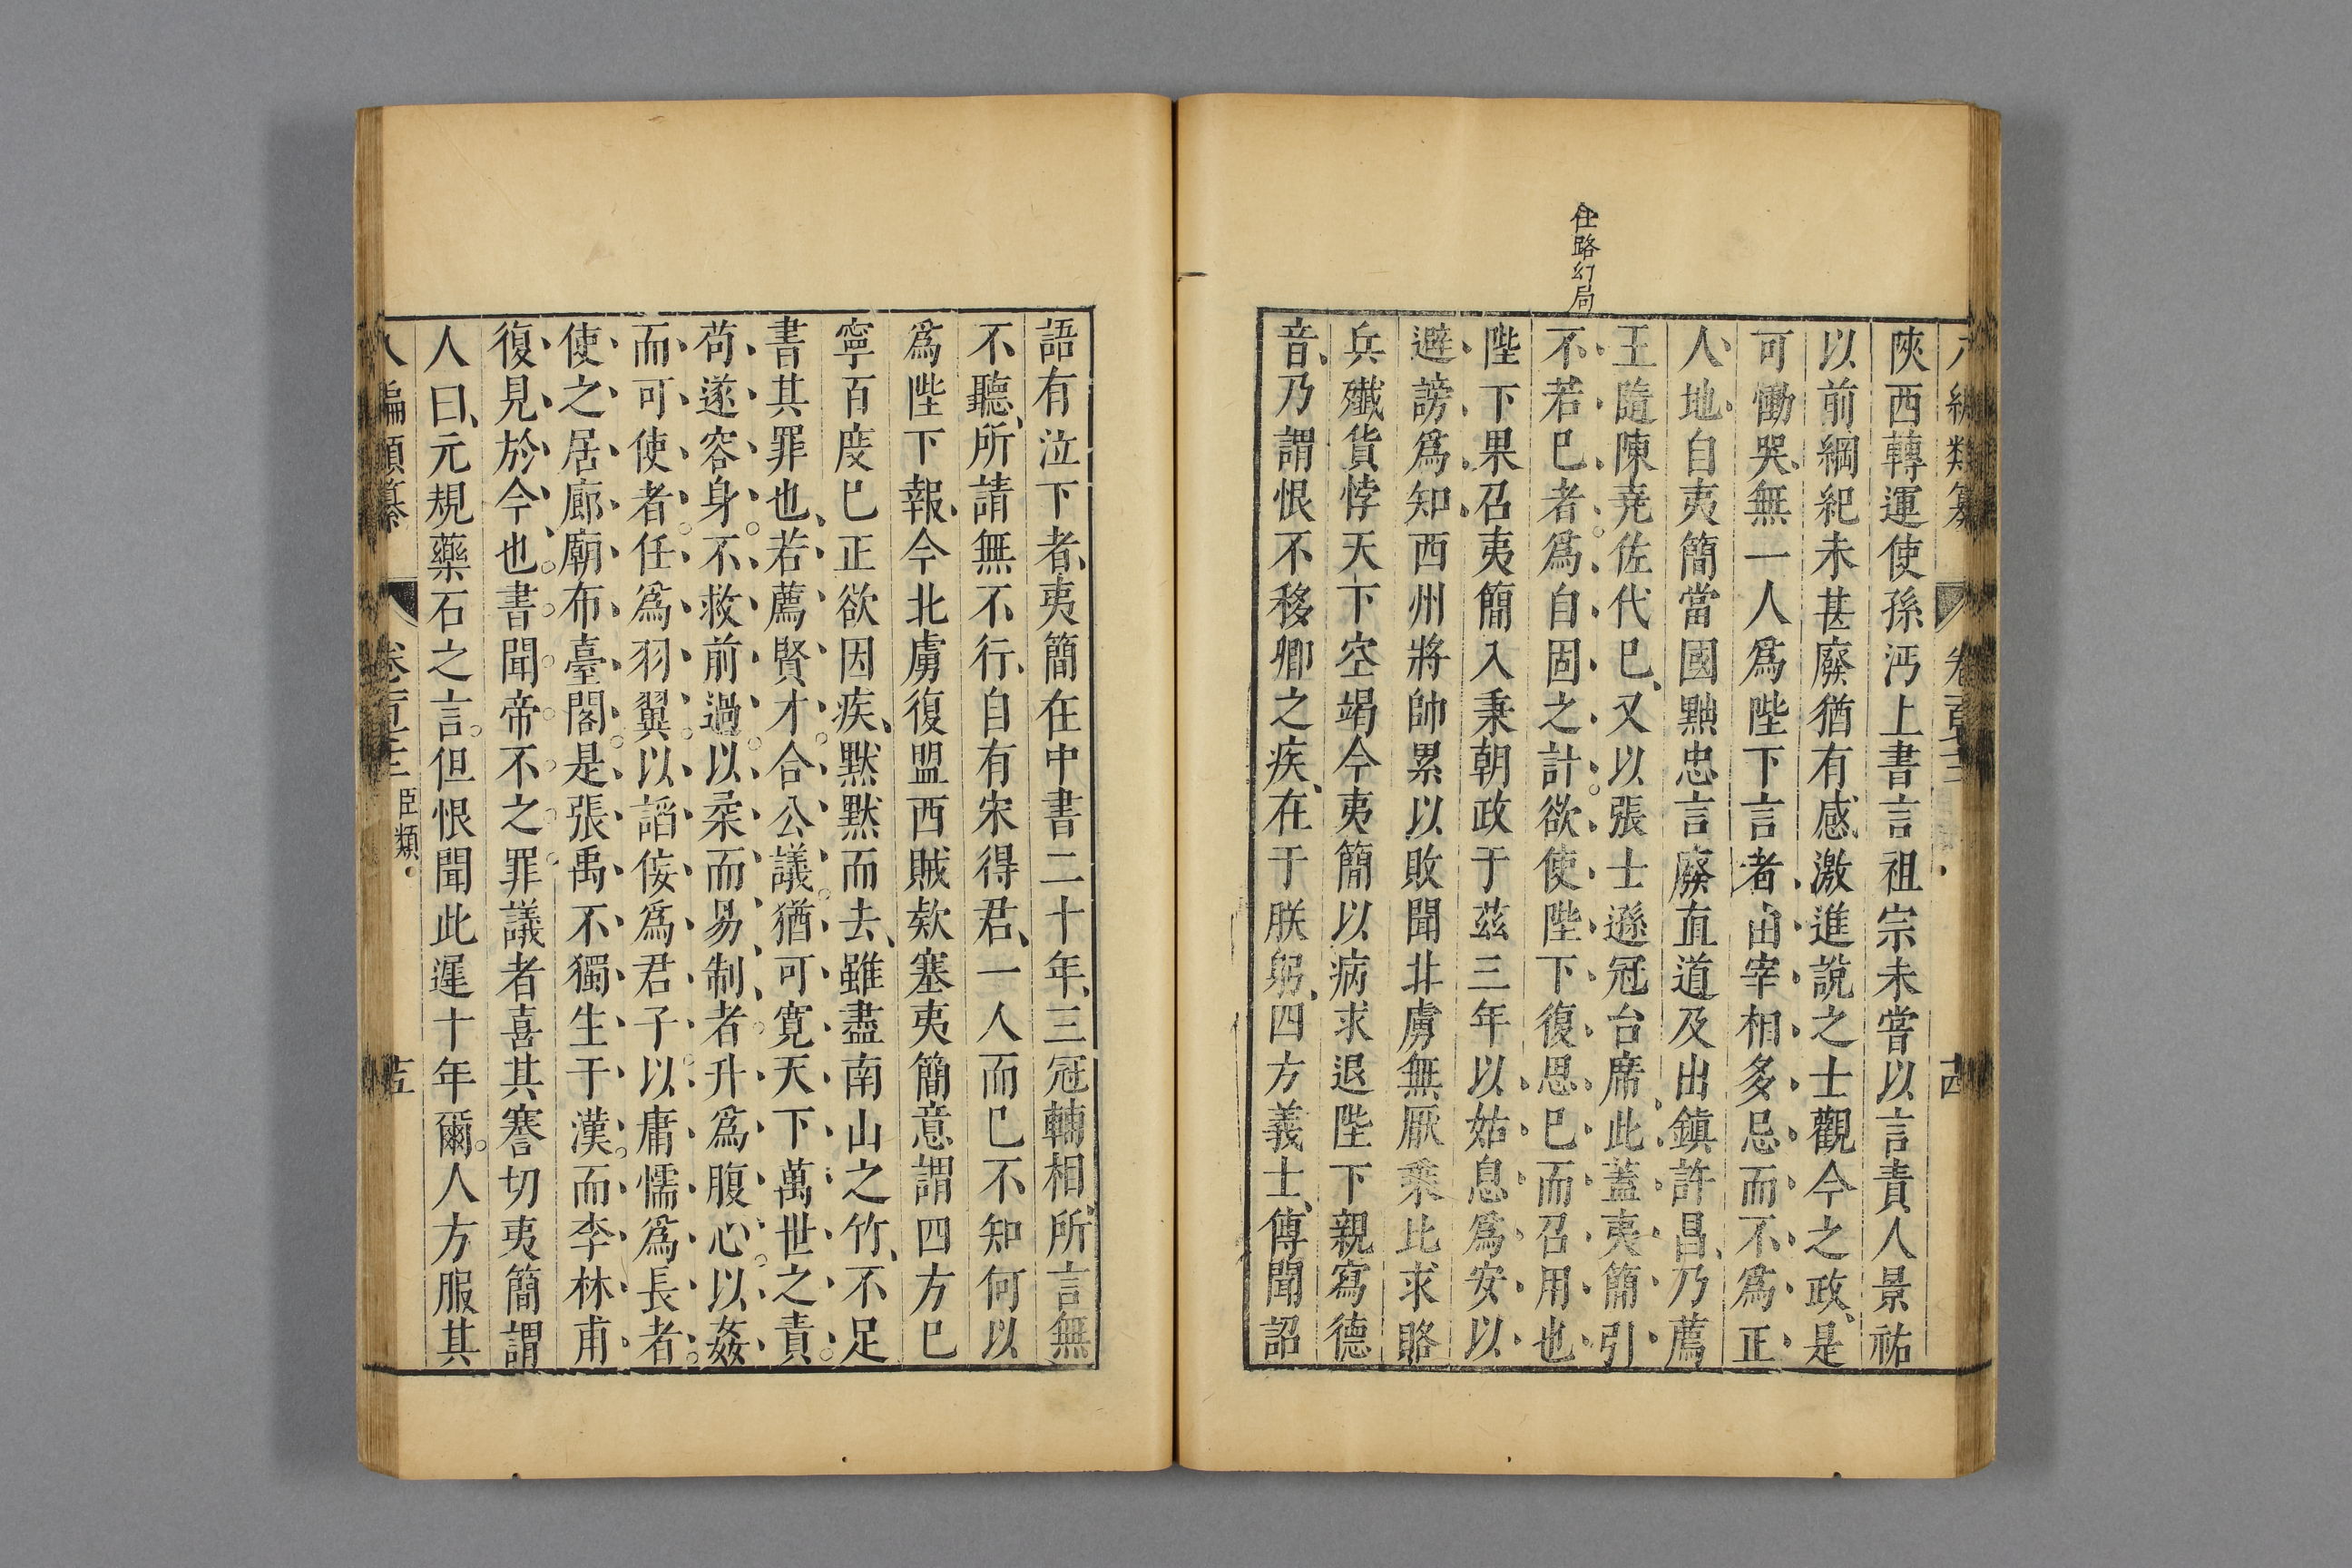 仕路幻局
八編類纂 卷百十三 十四
陜西轉運使孫沔上書言祖宗未嘗以言責人景祐
以前綱紀未甚廢猶有感激進說之士觀今之政是
可慟哭無一人爲陛下言者由宰相多忌而不爲正
人地自夷簡當國黜忠言廢直道及出鎮許昌乃薦
王隨陳尭佐代巳又以張士遜冠台席此蓋夷簡引
不若巳者爲自固之計欲使陛下復思巳而召用也
陛下果召夷簡入秉朝政于茲三年以姑息爲安以
避謗爲知西州將帥累以敗聞北虜無厭乘比求賂
兵殲貨悖天下空竭今夷簡以病求退陛下親寫德
音乃謂恨不移卿之疾在于朕躬四方義士傳聞詔
語有泣下者夷簡在中書二十年三冠輔相所言無
不聽所請無不行自有宋得君一人而巳不知何以
爲陛下報今北虜復盟西賊欵塞夷簡意謂四方巳
寧百度巳正欲因疾默默而去雖盡南山之竹不足
書其罪也若薦賢才合公議猶可寛天下萬世之責
苟遂容身不救前過以柔而易制者升爲腹心以姦
而可使者任爲羽翼以謟佞爲君子以庸懦爲長者
使之居廊廟布臺閣是張禹不獨生于漢而李林甫
復見於今也書聞帝不之罪議者喜其謇切夷簡謂
人曰元規藥石之言但恨聞此遲十年爾人方服其
八編類纂 卷百十三 臣類 十五